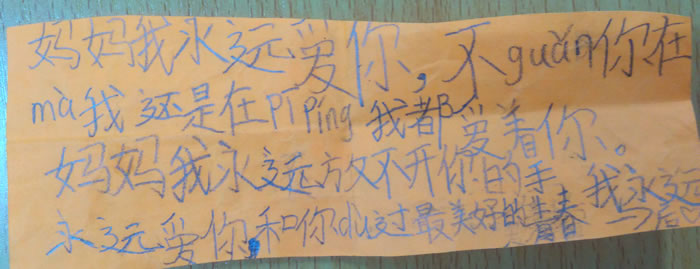 妈妈我永远爱你，不guǎn你在
mà我还是在pīpíng我都爱着你。
妈妈我永远放不开你的手，我永远
永远爱你，和你dù过最美好的青春